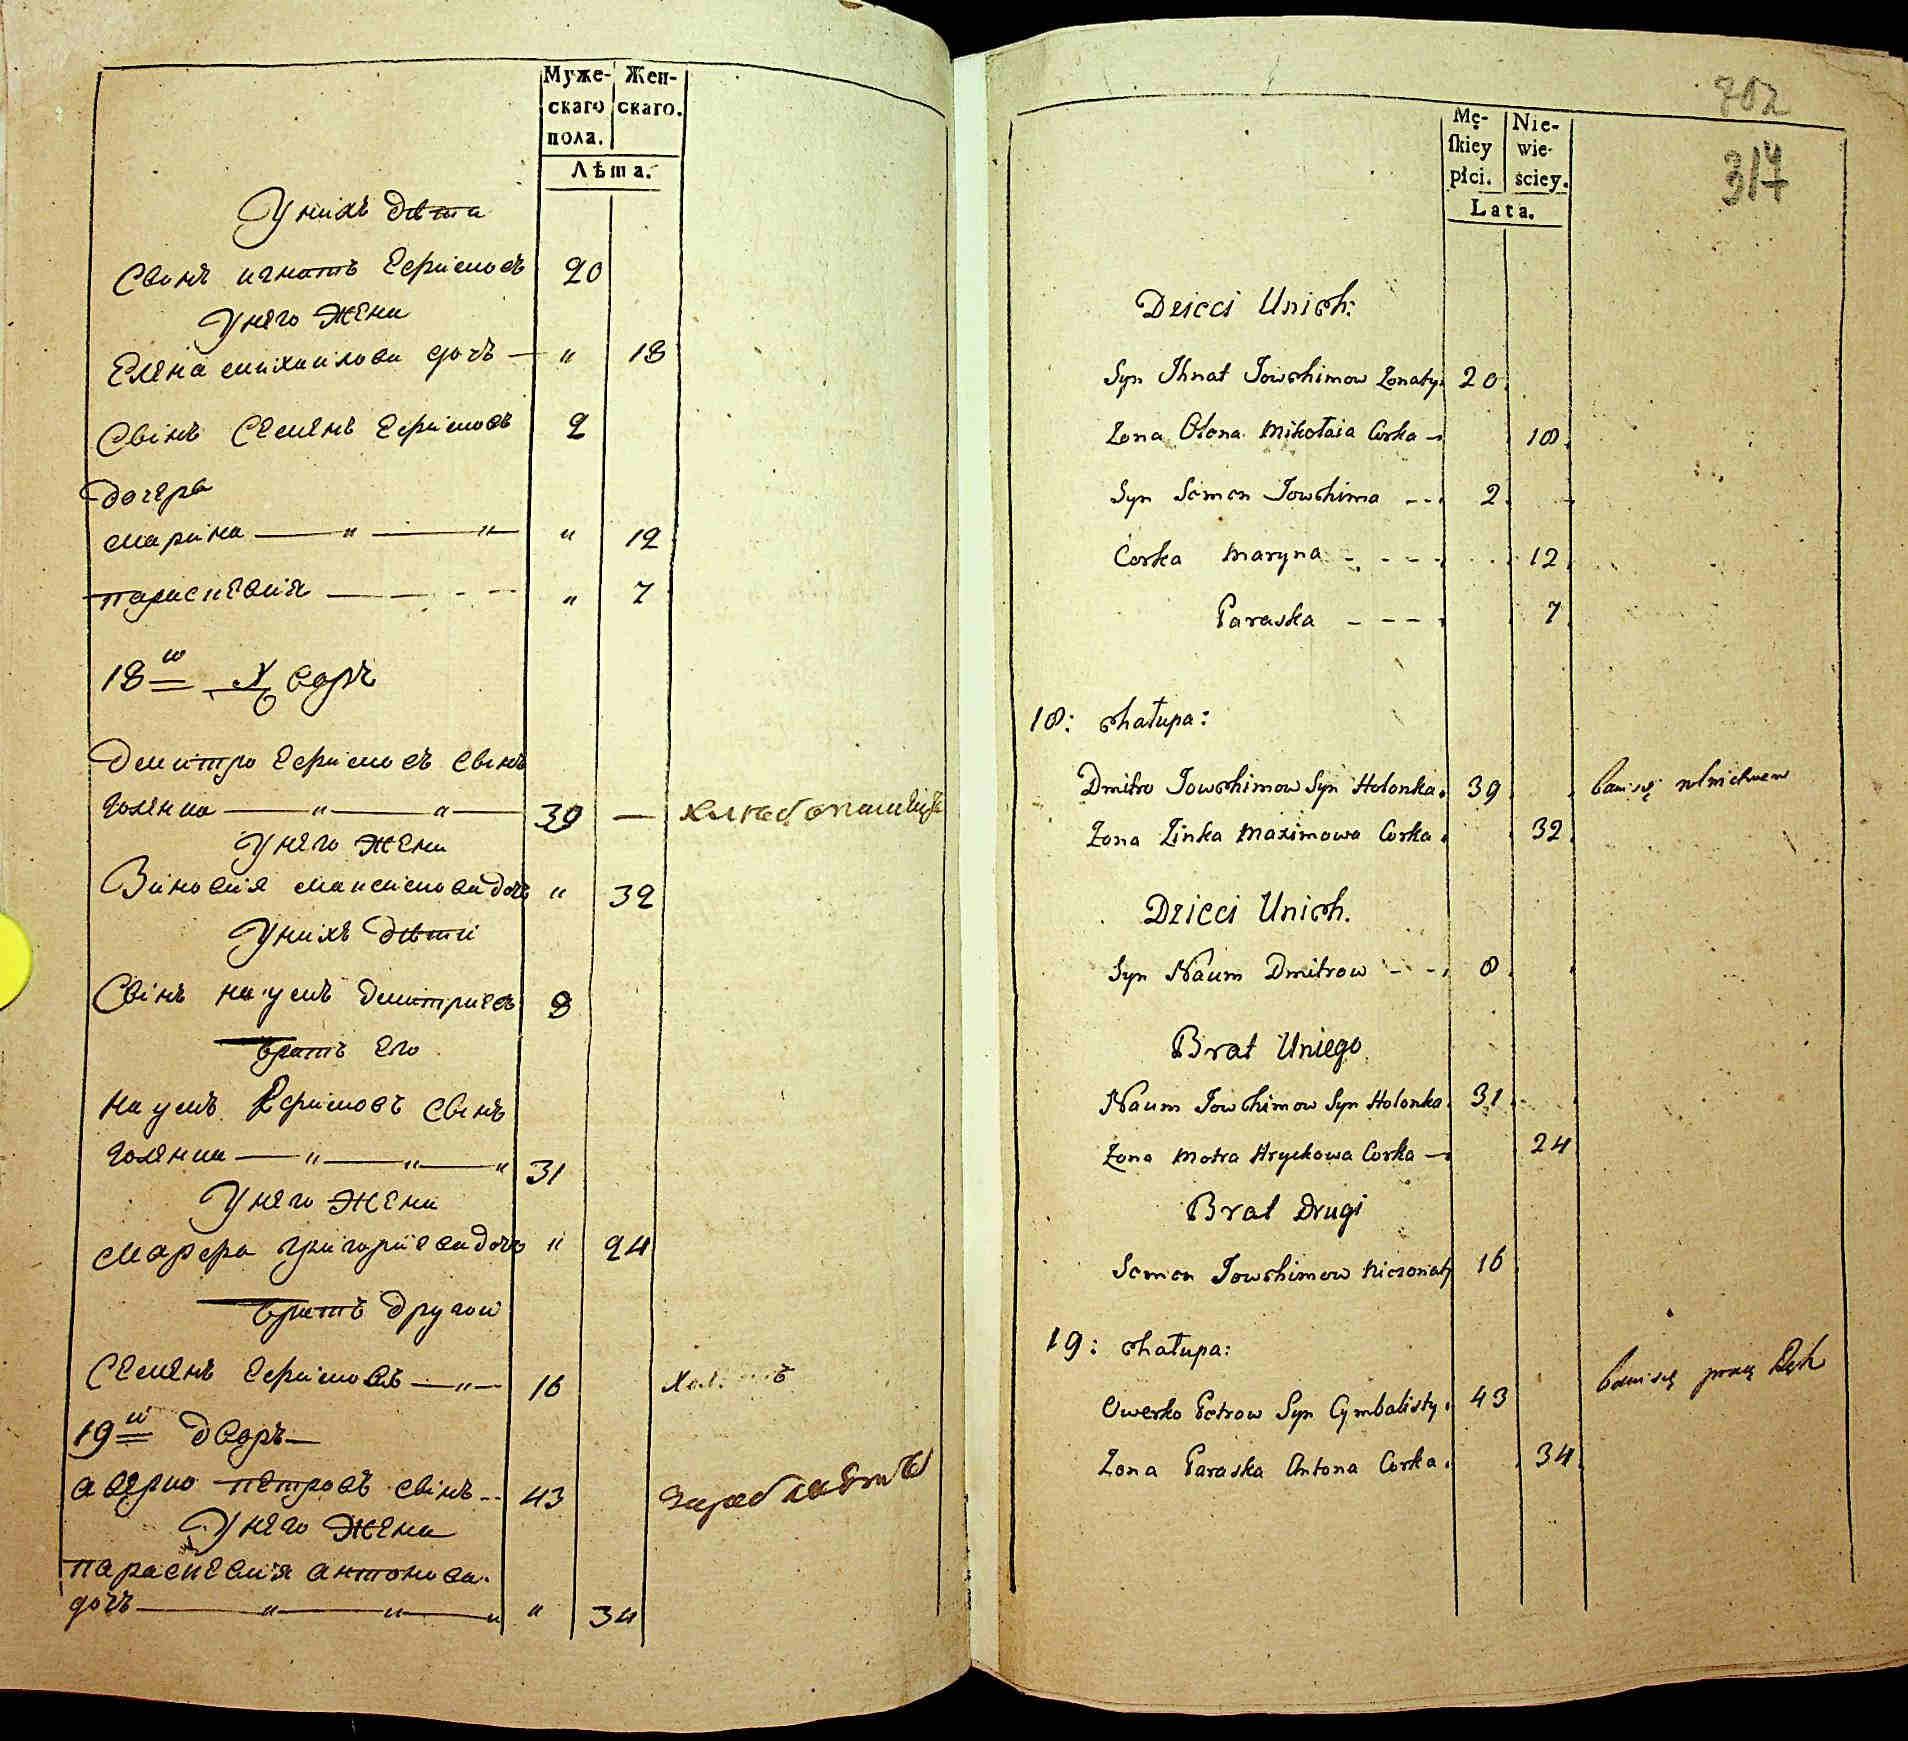 Муже-
скаго
пола.
Жен-
скаго.
Лѣта.
У нихъ дѣти
Свінъ игнатъ Ефимовъ 20
У него жена
Елена михаилова дочъ — " 18
Свінъ Семенъ Ефимовъ 2
дочерь
марина — " — " " 12
параскевия — - - - " 7
18й Дворъ
Дмитро Ефимовъ свінъ
голенка — " — " — 39 — хлебопашецъ
У него жена
Зиновия максимова дочъ " 32
У нихъ дѣти
Свінъ наумъ дмитриевъ 8
братъ его
наумъ Ефимовъ свінъ
голенка — " — " — " 31
У него жена
марфра григориева дочъ " 24
братъ другои
Семенъ Ефимовъ — " — 16
19й дворъ —
аверко петровъ свінъ - - 43
У него жена
параскевия антонова
дочъ — " — " — " " 34
702
317
Mę-
skiey
płci.
Nie-
wie-
ściey.
Lata.
Dzieci Unich:
Syn Ihnat Jowchimow Zonaty. 20.
Zona Olena Mikołaia Corka — 18.
Syn Semen Jowchima - - . 2.
Corka Maryna - - - - . 12.
Paraska - - - - . 7.
18: Chałupa:
Dmitro Jowchimow Syn Holonka. 39. bawi się rolnictwem
Zona Zinka Maximowa Corka. 32.
Dzieci Unich.
Syn Naum Dmitrow - - . 8.
Brat Uniego
Naum Jowchimow Syn Holonka. 31.
Zona Motra Hryckowa Corka — 24
Brat Drugi
Semen Jowchimow Niezonaty 16
19: Chałupa:
Owerko Petrow Syn Cymbalisty. 43 bawi się pracą Rąk
Zona Paraska Antona Corka. 34.